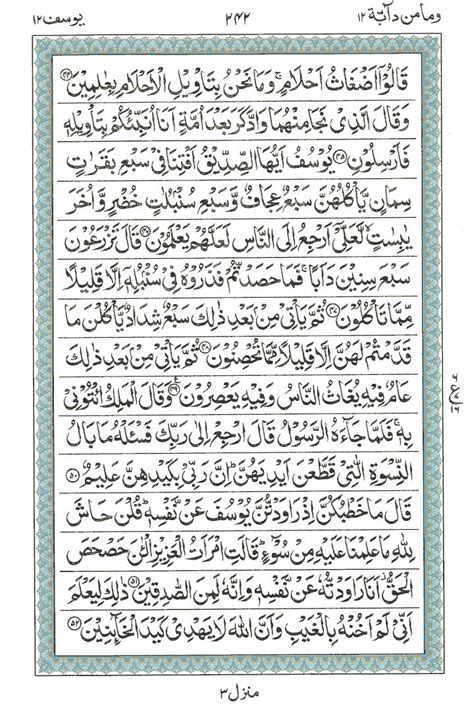 وما من دآبة ١٢
٢٤٢
يوسف ١٢
قَالُوْۤا اَضْغَاثُ اَحْلَامٍ ۚ وَمَا نَحْنُ بِتَاْوِيْلِ الْاَحْلَامِ بِعٰلِمِيْنَ ﴿۴۴﴾
وَقَالَ الَّذِيْ نَجَا مِنْهُمَا وَادَّكَرَ بَعْدَ اُمَّةٍ اَنَا اُنَبِّئُكُمْ بِتَاْوِيْلِهٖ
فَاَرْسِلُوْنِ ﴿۴۵﴾ يُوْسُفُ اَيُّهَا الصِّدِّيْقُ اَفْتِنَا فِيْ سَبْعِ بَقَرٰتٍ
سِمَانٍ يَّاْكُلُهُنَّ سَبْعٌ عِجَافٌ وَّسَبْعِ سُنْۢبُلٰتٍ خُضْرٍ وَّاُخَرَ
يٰبِسٰتٍ لَّعَلِّيْۤ اَرْجِعُ اِلَى النَّاسِ لَعَلَّهُمْ يَعْلَمُوْنَ ﴿۴۶﴾ قَالَ تَزْرَعُوْنَ
سَبْعَ سِنِيْنَ دَاَبًا ۚ فَمَا حَصَدْتُّمْ فَذَرُوْهُ فِيْ سُنْۢبُلِهٖۤ اِلَّا قَلِيْلًا
مِّمَّا تَاْكُلُوْنَ ﴿۴۷﴾ ثُمَّ يَاْتِيْ مِنْۢ بَعْدِ ذٰلِكَ سَبْعٌ شِدَادٌ يَّاْكُلْنَ مَا
قَدَّمْتُمْ لَهُنَّ اِلَّا قَلِيْلًا مِّمَّا تُحْصِنُوْنَ ﴿۴۸﴾ ثُمَّ يَاْتِيْ مِنْۢ بَعْدِ ذٰلِكَ
عَامٌ فِيْهِ يُغَاثُ النَّاسُ وَفِيْهِ يَعْصِرُوْنَ ﴿۴۹﴾ وَقَالَ الْمَلِكُ ائْتُوْنِيْ
بِهٖ ۚ فَلَمَّا جَآءَهُ الرَّسُوْلُ قَالَ ارْجِعْ اِلٰى رَبِّكَ فَسْـَٔلْهُ مَا بَالُ
النِّسْوَةِ الّٰتِيْ قَطَّعْنَ اَيْدِيَهُنَّ ؕ اِنَّ رَبِّيْ بِكَيْدِهِنَّ عَلِيْمٌ ﴿۵۰﴾
قَالَ مَا خَطْبُكُنَّ اِذْ رَاوَدْتُّنَّ يُوْسُفَ عَنْ نَّفْسِهٖ ؕ قُلْنَ حَاشَ
لِلّٰهِ مَا عَلِمْنَا عَلَيْهِ مِنْ سُوْٓءٍ ؕ قَالَتِ امْرَاَتُ الْعَزِيْزِ الْـٰٔنَ حَصْحَصَ
الْحَقُّ ؗ اَنَا رَاوَدْتُّهٗ عَنْ نَّفْسِهٖ وَاِنَّهٗ لَمِنَ الصّٰدِقِيْنَ ﴿۵۱﴾ ذٰلِكَ لِيَعْلَمَ
اَنِّيْ لَمْ اَخُنْهُ بِالْغَيْبِ وَاَنَّ اللّٰهَ لَا يَهْدِيْ كَيْدَ الْخَآئِنِيْنَ ﴿۵۲﴾
منزل ٣